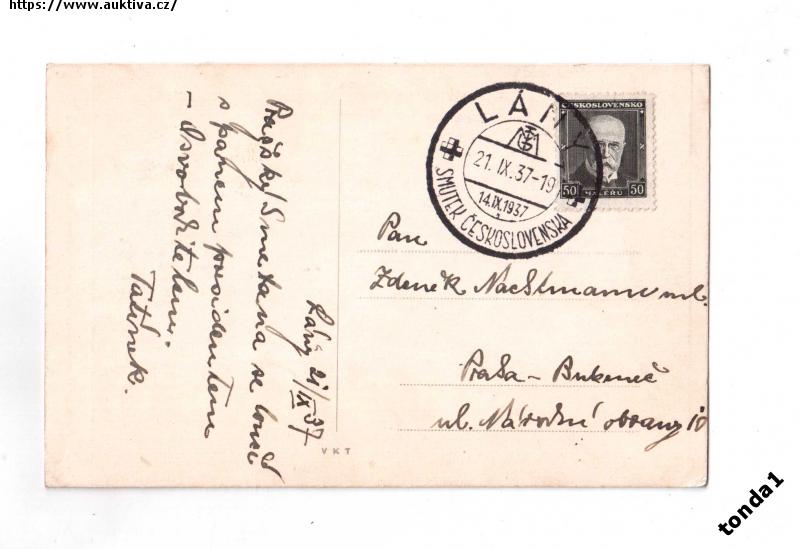 https://www.auktiva.cz/
LÁNY
TGM
21. IX. 37-19
14.IX.1937
SMUTEK ČESKOSLOVENSKA
ČESKOSLOVENSKO
50 HALÉŘŮ 50
Lány 21/IX 37
Pražský Smetana se loučí
s panem presidentem
- Osvoboditelem.
Tatínek.
Pan
Zdeněk Nachtmann ml.
Praha - Bubeneč
ul. Národní obrany 10
VKT
tonda1